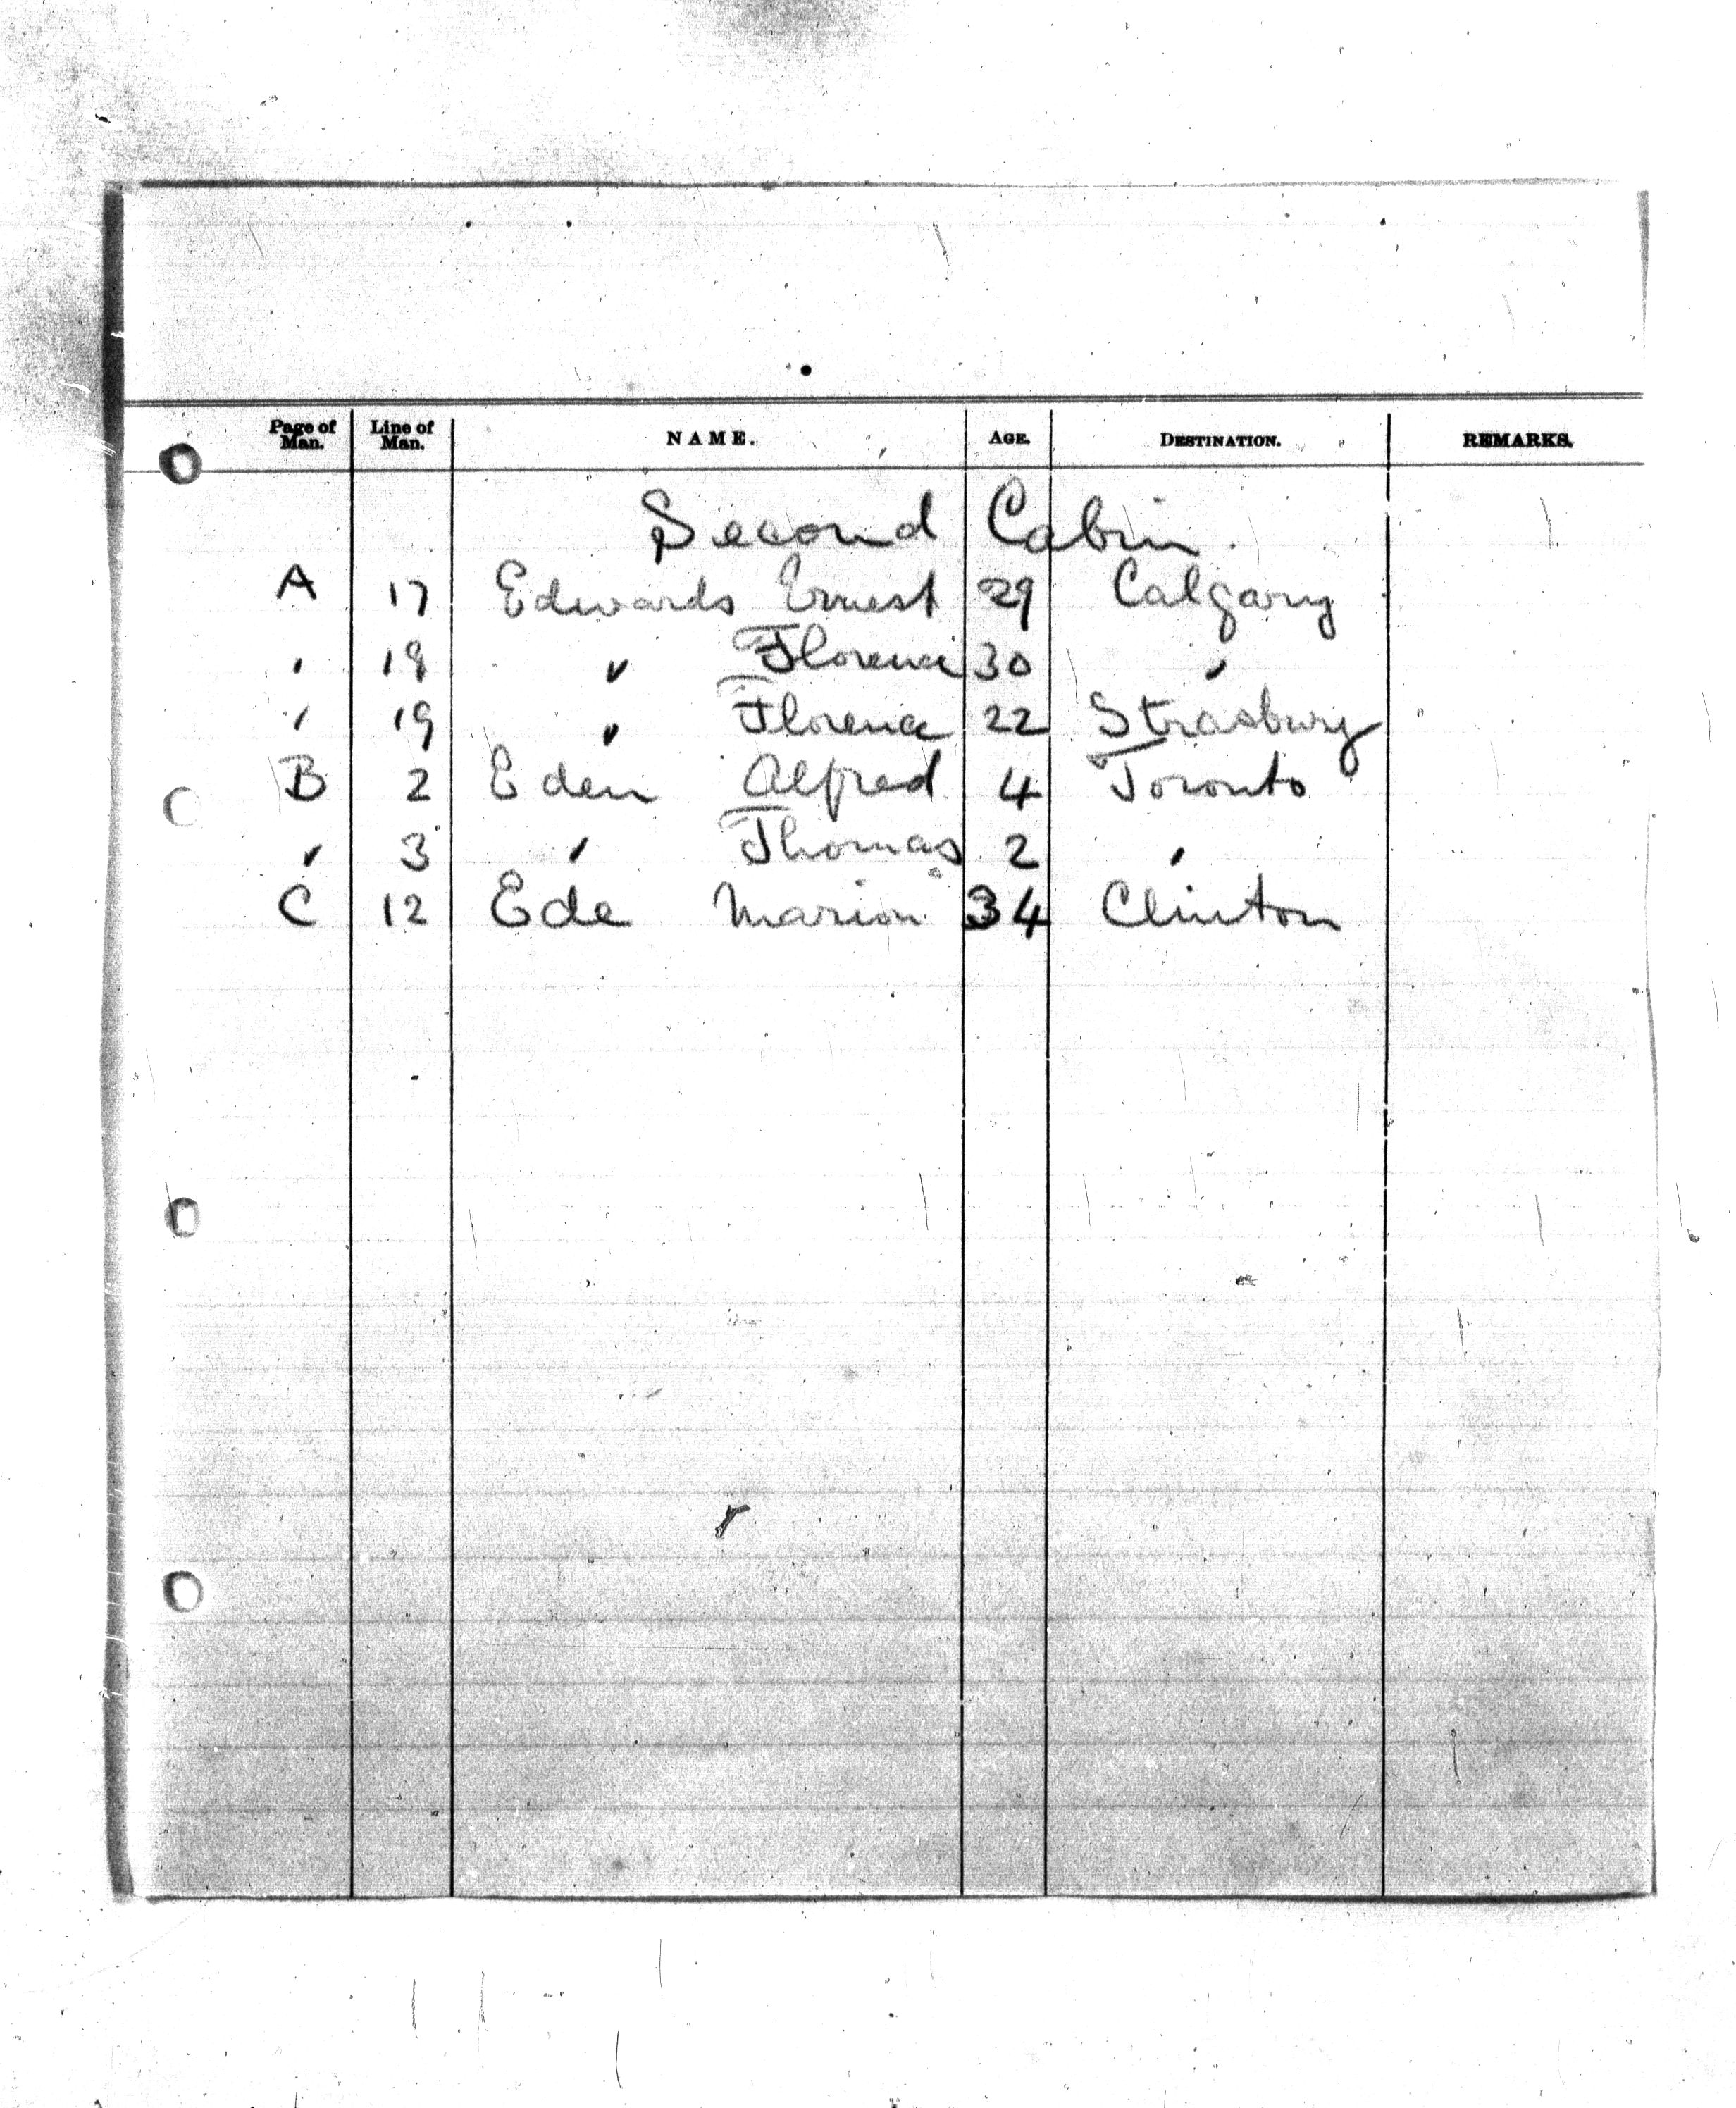 Page of Man. Line of Man. NAME. AGE. DESTINATION. REMARKS.
Second Cabin
A 17 Edwards Ernest 29 Calgary
" 18 " Florence 30 "
" 19 " Florence 22 Strasburg
B 2 Eden Alfred 4 Toronto
" 3 " Thomas 2 "
C 12 Ede Marion 34 Clinton